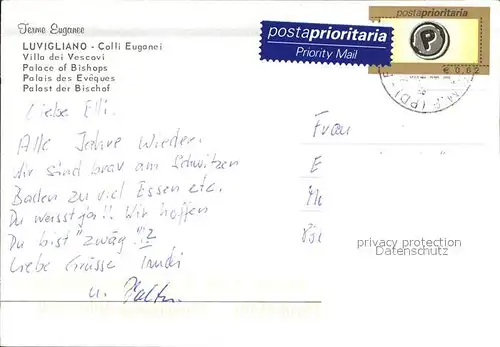 Terme Euganee
LUVIGLIANO - Colli Euganei
Villa dei Vescovi
Palace of Bishops
Palais des Evêques
Palast der Bischof
postaprioritaria
Priority Mail
postaprioritaria
P
€ 0,62
Liebe Elli.
Alle Jahre wieder.
Wir sind brav am Schwitzen
Baden zu viel Essen etc.
Du weisst ja!! Wir hoffen
Du bist "zwäg"!!
Liebe Grüsse Trudi
u.
Frau
E
privacy protection
Datenschutz